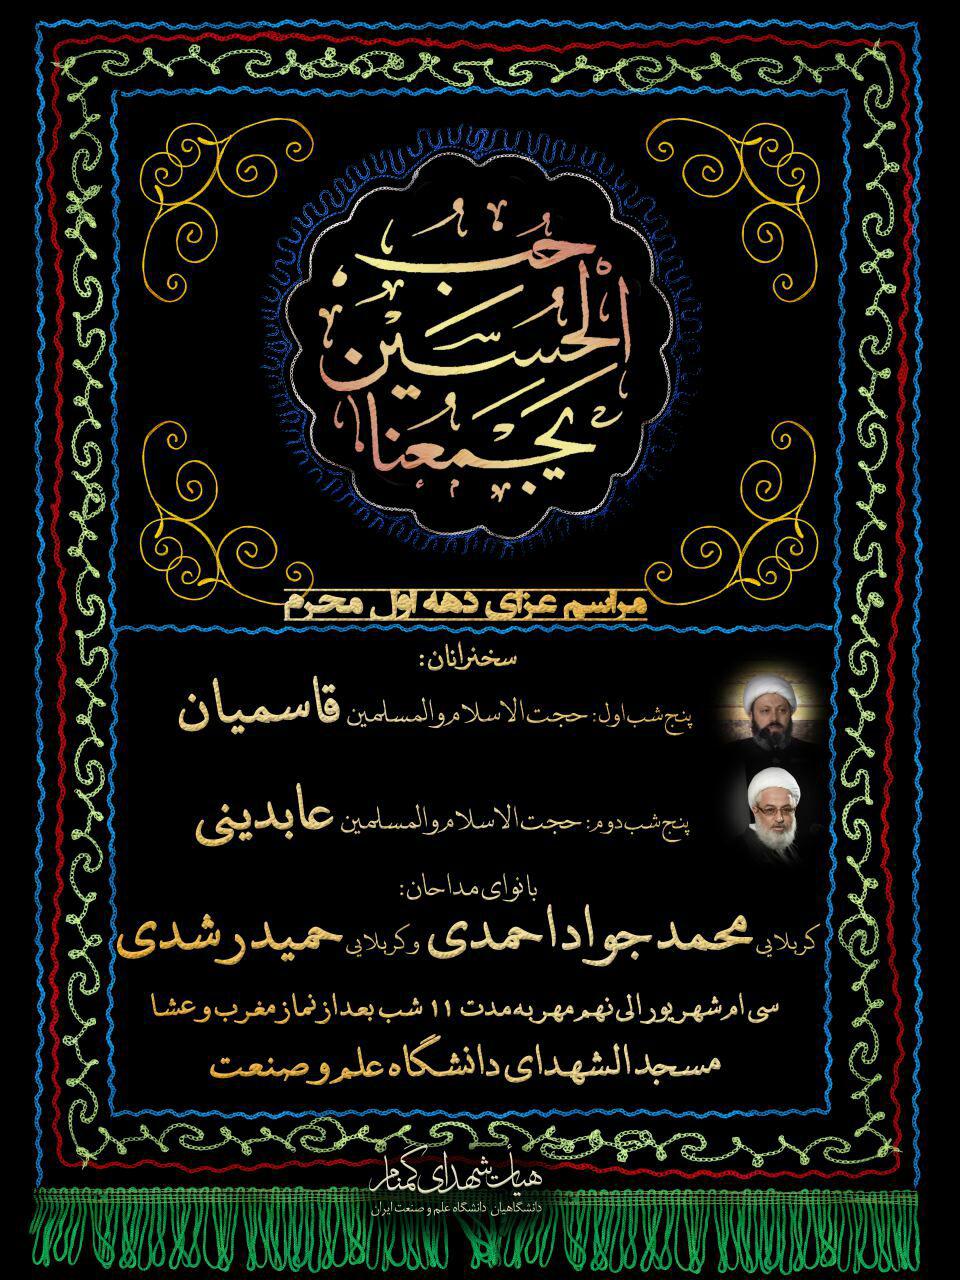 حُبُّ
الْحُسَيْنِ
يَجْمَعُنا
مراسم عزای دهه اول محرم
سخنرانان:
پنج شب اول: حجت الاسلام والمسلمین قاسمیان
پنج شب دوم: حجت الاسلام والمسلمین عابدینی
با نوای مداحان:
کربلایی محمد جواد احمدی و کربلایی حمید رشدی
سی ام شهریور الی نهم مهر به مدت ۱۱ شب بعد از نماز مغرب و عشا
مسجد الشهدای دانشگاه علم و صنعت
هیأت شهدای گمنام
دانشگاهیان دانشگاه علم و صنعت ایران